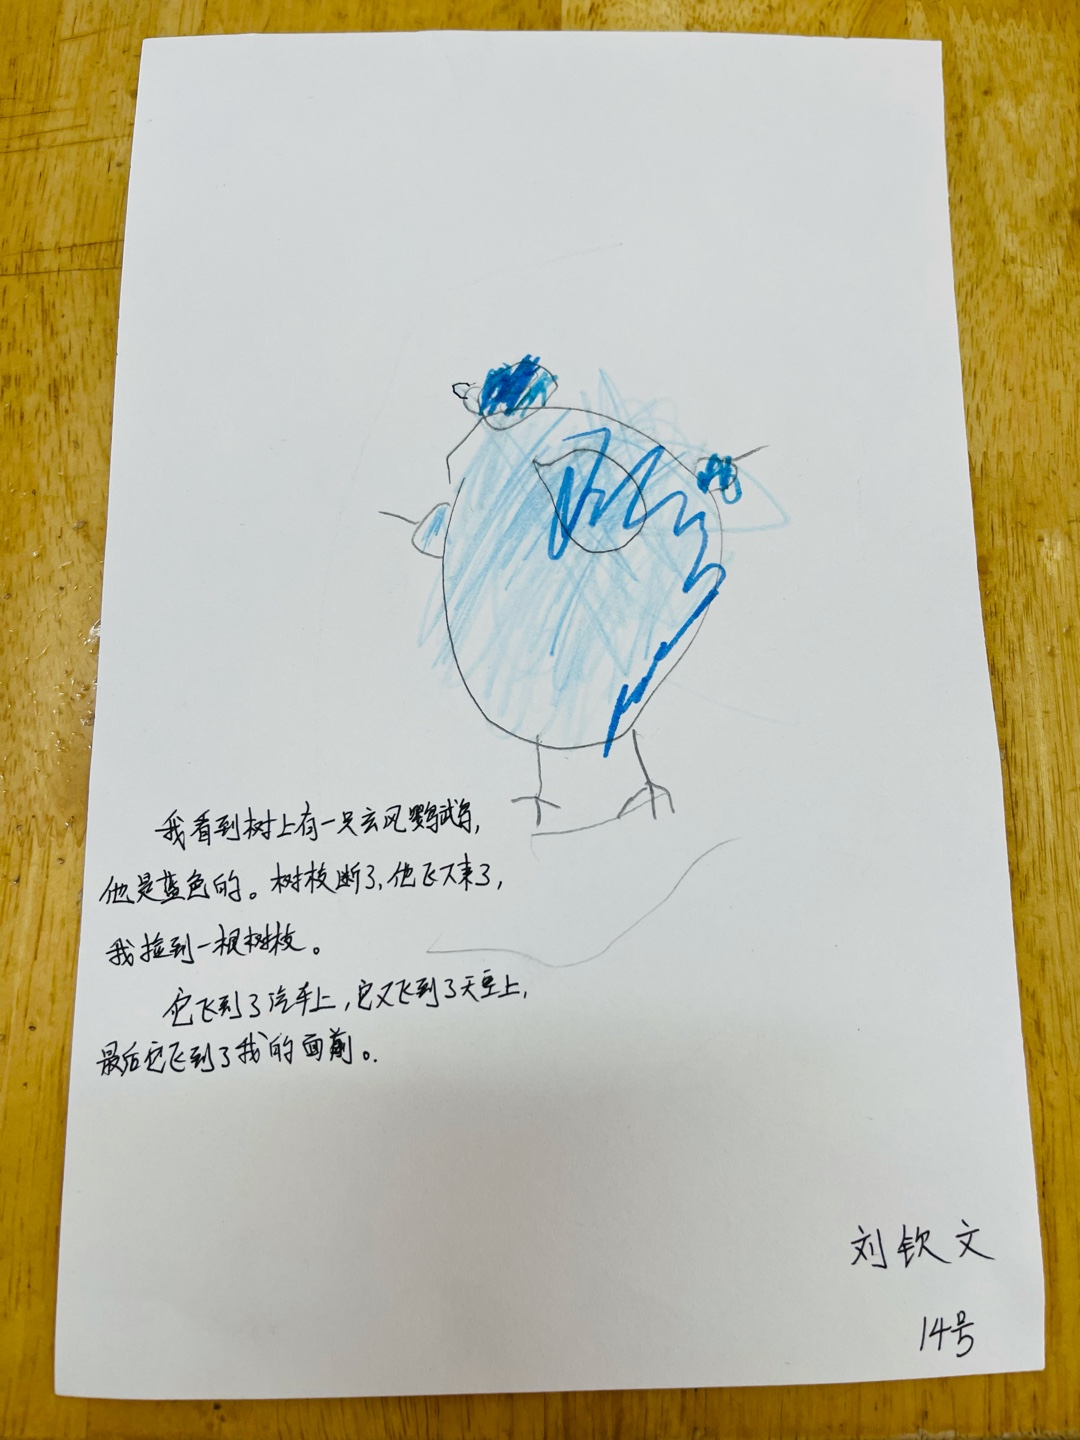 我看到树上有一只玄风鹦鹉,
他是蓝色的。树枝断了,他飞下来了,
我捡到一根树枝。
它飞到了汽车上,它又飞到了天空上,
最后它飞到了我的面前。
刘钦文
14号